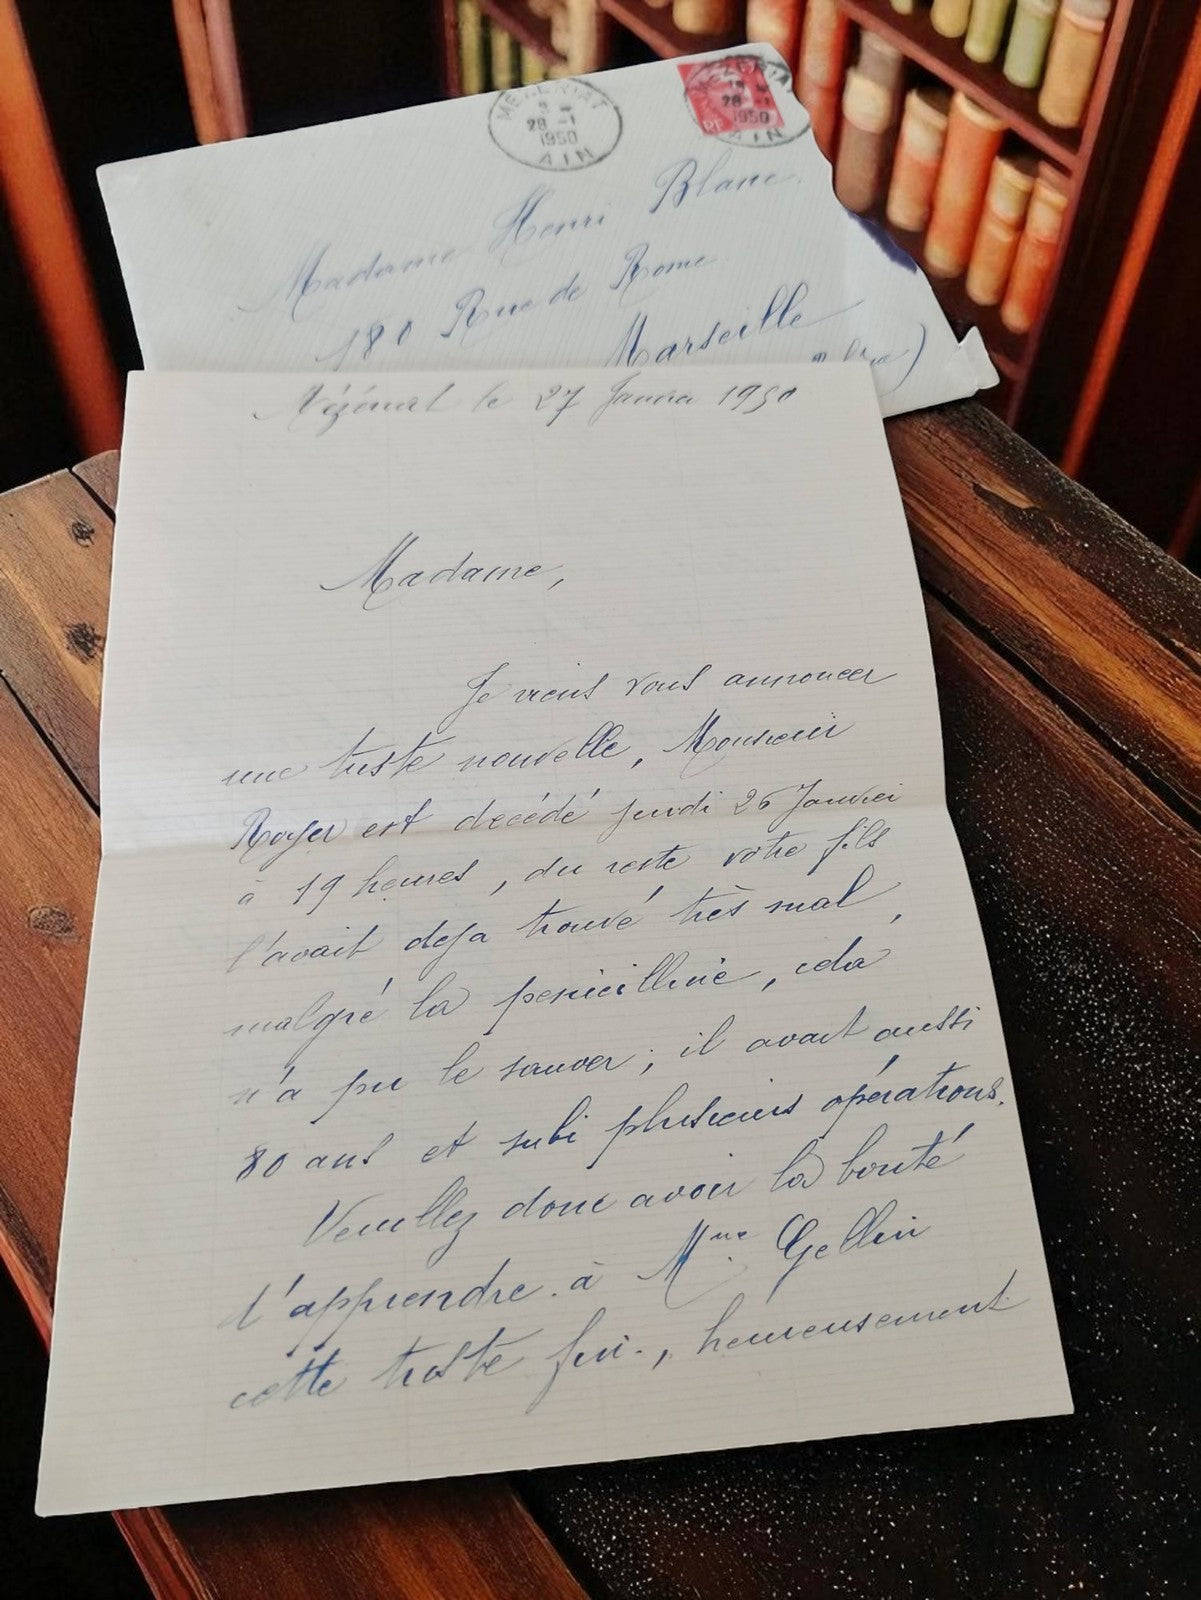 MEZERIAT
28 -1
1950
AIN
MEZERIAT
18
28 -1
1950
AIN
RF
Madame Henri Blanc
180 Rue de Rome
Marseille
)
Mézériat le 27 Janvier 1950
Madame,
Je viens vous annoncer
une triste nouvelle, Monsieur
Royer est décédé jeudi 26 Janvier
à 19 heures, du reste votre fils
l'avait deja trouvé très mal,
malgré la penicilline, cela
n'a pu le sauver; il avait aussi
80 ans et subi plusieurs opérations.
Veuillez donc avoir la bonté
d'apprendre à Mme Gellin
cette triste fin., heureusement